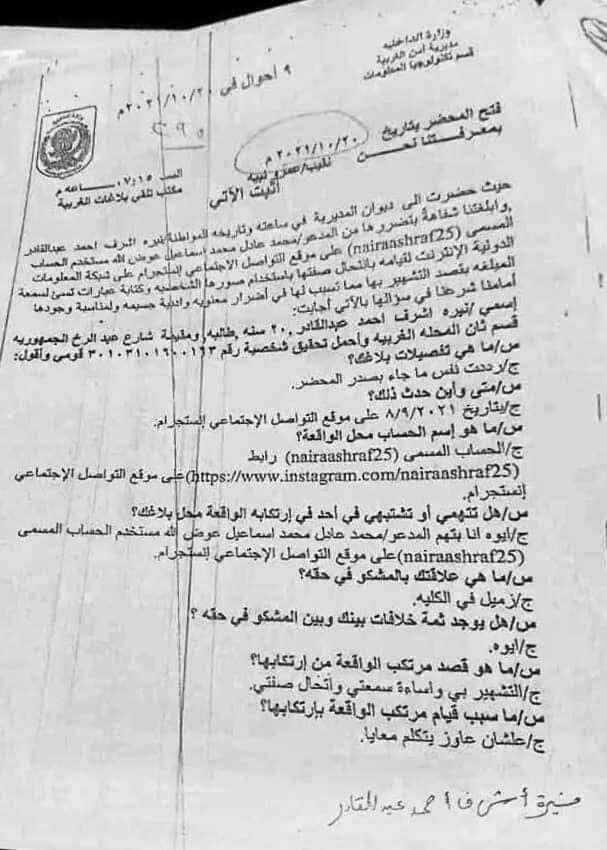 وزارة الداخليه
مديرية امن الغربية
قسم تكنولوجيا المعلومات
٩ احوال في ٢٠٢١/١٠/٢٠م
فتح المحضر بتاريخ ٢٠٢١/١٠/٢٠ م الســ ٠٧،١٥ ـــاعه م
بمعرفتنا نحـــن نقيب/عمرو نبيه مكتب تلقي بلاغات الغربية
أثبت الآتي
حيث حضرت الى ديوان المديرية في ساعته وتاريخه المواطنة/نيره اشرف احمد عبدالقادر
,وابلغتنا شفاهة بتضررها من المدعو/محمد عادل محمد اسماعيل عوض الله مستخدم الحساب
المسمى (nairaashraf25) على موقع التواصل الإجتماعي إنستجرام على شبكة المعلومات
الدولية الإنترنت لقيامه بانتحال صفتها باستخدام صورها الشخصيه وكتابة عبارات تسئ لسمعة
المبلغه بقصد التشهير بها مما تسبب لها في أضرار معنويه وادبية جسيمه ولمناسبة وجودها
أمامنا شرعنا في سؤالها بالآتي أجابت:
إسمي /نيره اشرف احمد عبدالقادر ,٢٠ سنه ,طالبه, ومقيمة شارع عبد الجمهوريه
قسم ثان المحله الغربيه وأحمل تحقيق شخصية رقم ٣٠١٠٣١٠١٦٠٠١٦٣ قومي وأقول:
س/ما هي تفصيلات بلاغك؟
ج/رددت نفس ما جاء بصدر المحضر.
س/متى وأين حدث ذلك؟
ج/بتاريخ ٨/٩/٢٠٢١ على موقع التواصل الإجتماعي إنستجرام.
س/ما هو إسم الحساب محل الواقعة؟
ج/الحساب المسمى (nairaashraf25) رابط
(https://www.instagram.com/nairaashraf25)على موقع التواصل الإجتماعي
إنستجرام.
س/هل تتهمي أو تشتبهي في أحد في إرتكابه الواقعة محل بلاغك؟
ج/أيوه انا بتهم المدعو/محمد عادل محمد اسماعيل عوض الله مستخدم الحساب المسمى
(nairaashraf25)على موقع التواصل الإجتماعي إنستجرام.
س/ما هي علاقتك بالمشكو في حقه؟
ج/زميل في الكليه.
س/هل يوجد ثمة خلافات بينك وبين المشكو في حقه ؟
ج/ايوه.
س/ما هو قصد مرتكب الواقعة من إرتكابها؟
ج/التشهير بي وإساءة سمعتي وأتحال صفتي.
س/ما سبب قيام مرتكب الواقعة بإرتكابها؟
ج/علشان عاوز يتكلم معايا.
أشرف أحمد عبد القادر